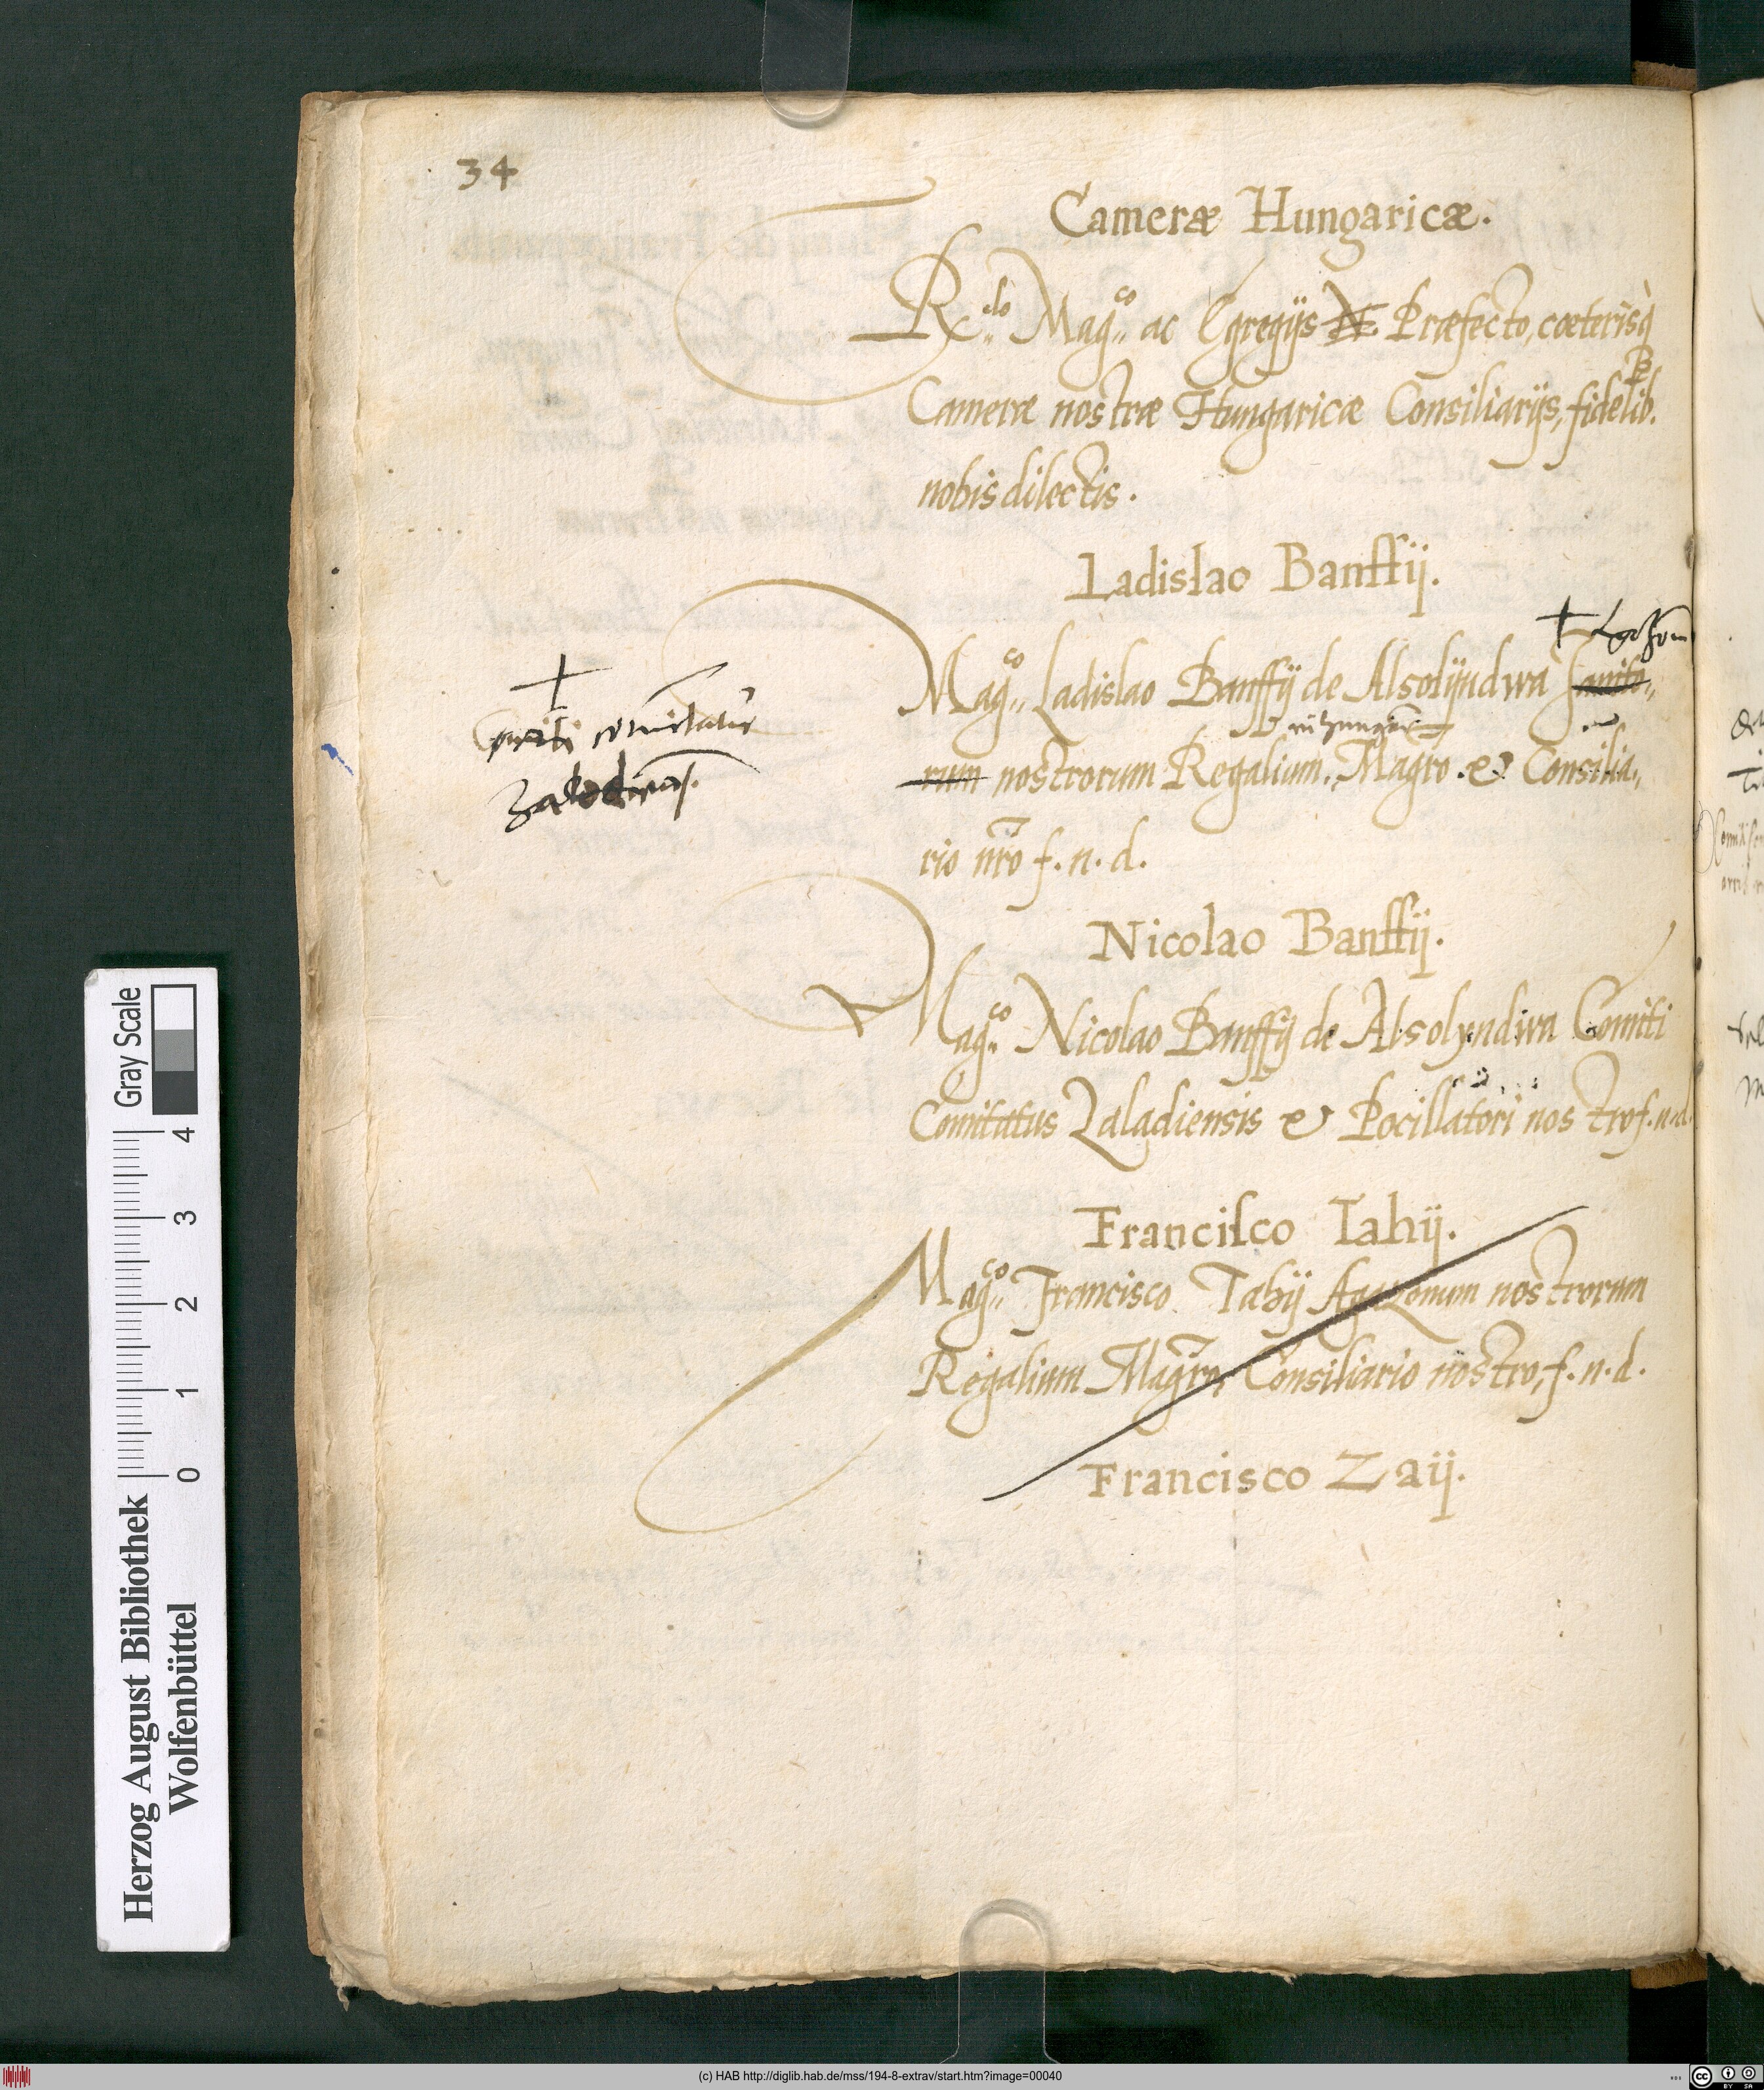 34
Cameræ Hungaricæ.
R.do Mag.co ac Egregijs N. Præfecto, cæterisq̀
Cameræ nostræ Hungaricæ Consiliarijs, fidelib.
nobis dilectis.
Ladislao Banffij.
Mag.co Ladislao Banffij de Alsolijndwa Janito-
rum nostrorum Regalium Magr̃o & Consilia-
rio nr̃o f. n. d.
+
comitatus
Nicolao Banffij.
Mag.co Nicolao Banffij de Alsolyndwa Comiti
Comitatus Zaladiensis & Pocillatori nostro f. n. d.
Francisco Tahij.
Mag.co Francisco Tahij Agazonum nostrorum
Regalium Magr̃o, Consiliario nostro, f. n. d.
Francisco Zaij.
Gray Scale
0 1 2 3 4
Herzog August Bibliothek
Wolfenbüttel
(c) HAB http://diglib.hab.de/mss/194-8-extrav/start.htm?image=00040